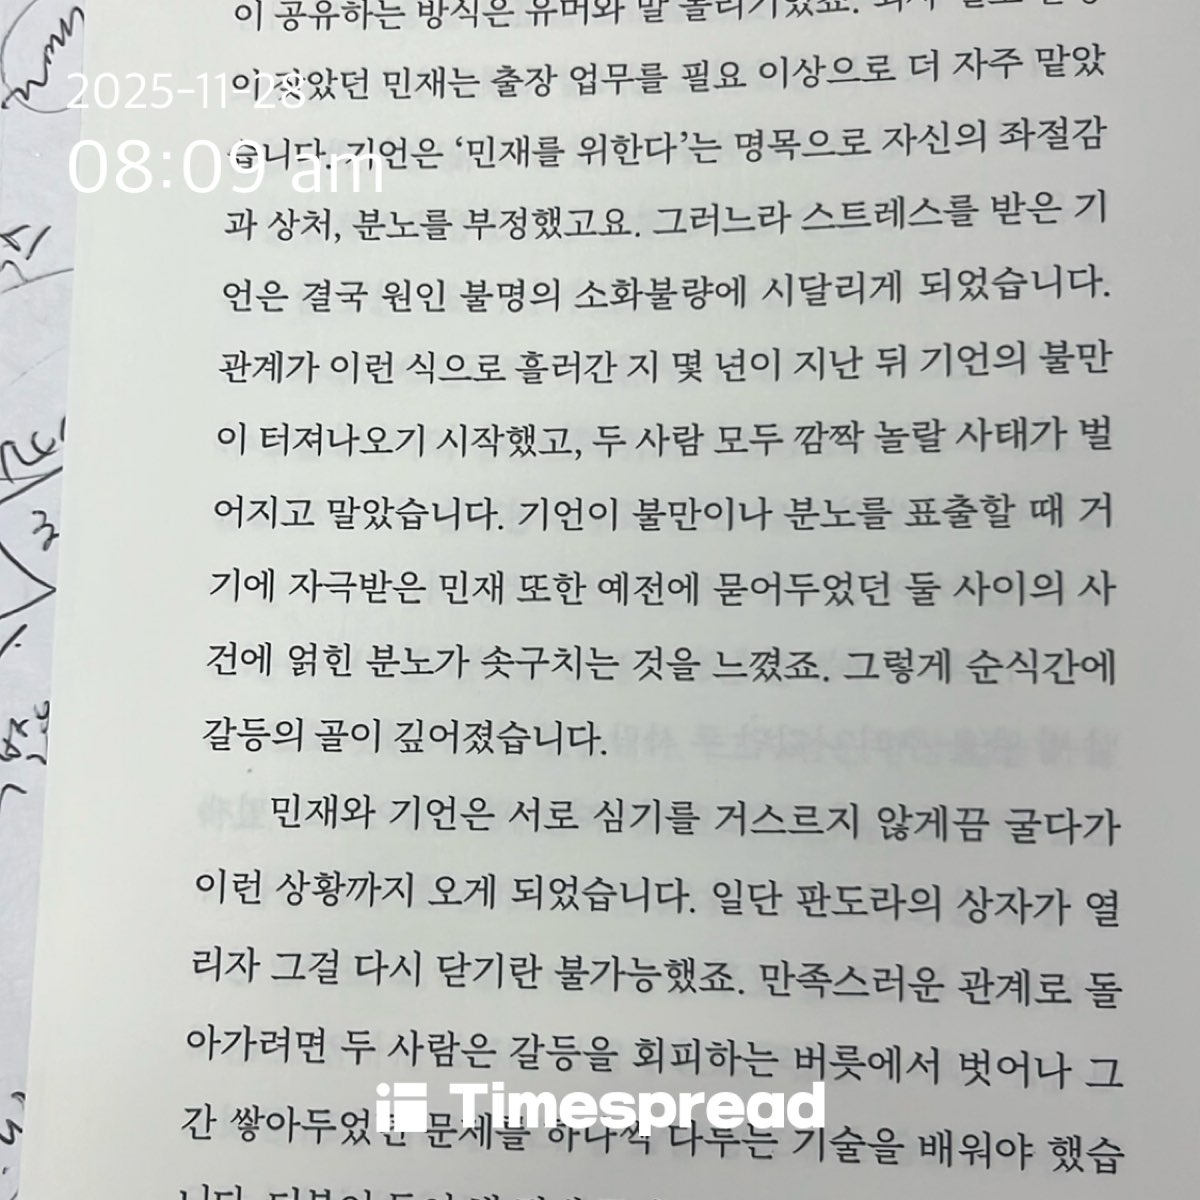 이 공유하는 방식은 유머와 말 돌리기였죠.
2025-11-28
이 잦았던 민재는 출장 업무를 필요 이상으로 더 자주 맡았
08:09 am
습니다. 기언은 ‘민재를 위한다’는 명목으로 자신의 좌절감
과 상처, 분노를 부정했고요. 그러느라 스트레스를 받은 기
언은 결국 원인 불명의 소화불량에 시달리게 되었습니다.
관계가 이런 식으로 흘러간 지 몇 년이 지난 뒤 기언의 불만
이 터져나오기 시작했고, 두 사람 모두 깜짝 놀랄 사태가 벌
어지고 말았습니다. 기언이 불만이나 분노를 표출할 때 거
기에 자극받은 민재 또한 예전에 묻어두었던 둘 사이의 사
건에 얽힌 분노가 솟구치는 것을 느꼈죠. 그렇게 순식간에
갈등의 골이 깊어졌습니다.
민재와 기언은 서로 심기를 거스르지 않게끔 굴다가
이런 상황까지 오게 되었습니다. 일단 판도라의 상자가 열
리자 그걸 다시 닫기란 불가능했죠. 만족스러운 관계로 돌
아가려면 두 사람은 갈등을 회피하는 버릇에서 벗어나 그
간 쌓아두었던 문제를 하나씩 다루는 기술을 배워야 했습
Timespread